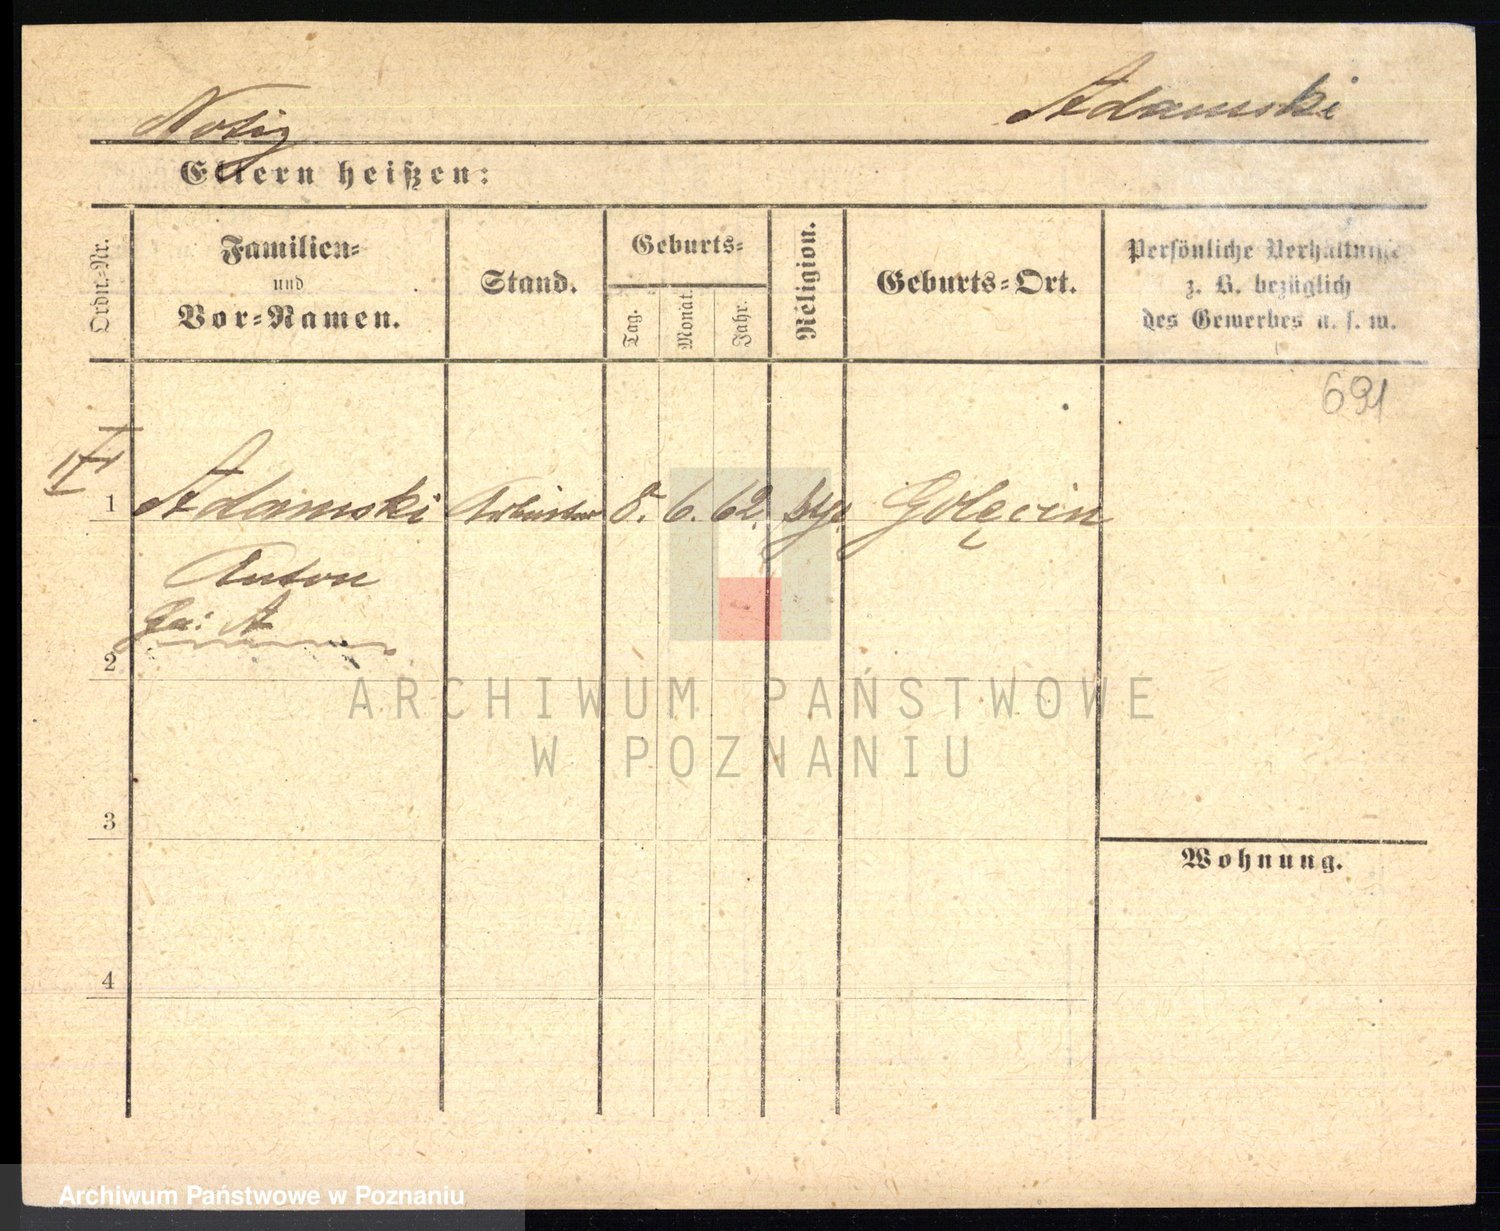 Notiz
Adamski
Eltern heißen:
Ordn.-Nr.
Familien-
und
Vor-Namen.
Stand.
Geburts-
Tag.
Monat.
Jahr.
Religion.
Geburts-Ort.
Persönliche Verhältnisse
z. B. bezüglich
des Gewerbes u. s. w.
691
1 Adamski Arbeiter 8. 6. 62. Golęcin
Anton
2
3
4
Wohnung.
ARCHIWUM PAŃSTWOWE
W POZNANIU
Archiwum Państwowe w Poznaniu